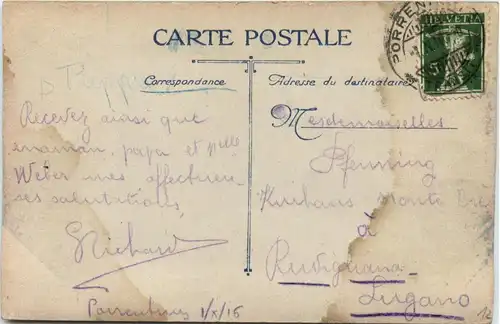 CARTE POSTALE
Correspondance
Adresse du destinataire
Recevez ainsi que
maman, papa et Melle
Weber mes affectueu-
ses salutations
Richard
Porrentruy 1/X/16
HELVETIA
PORREN
Mesdemoiselles
Pfenning
Kurhaus Monte Bre
à
Ruvigliana-
Lugano